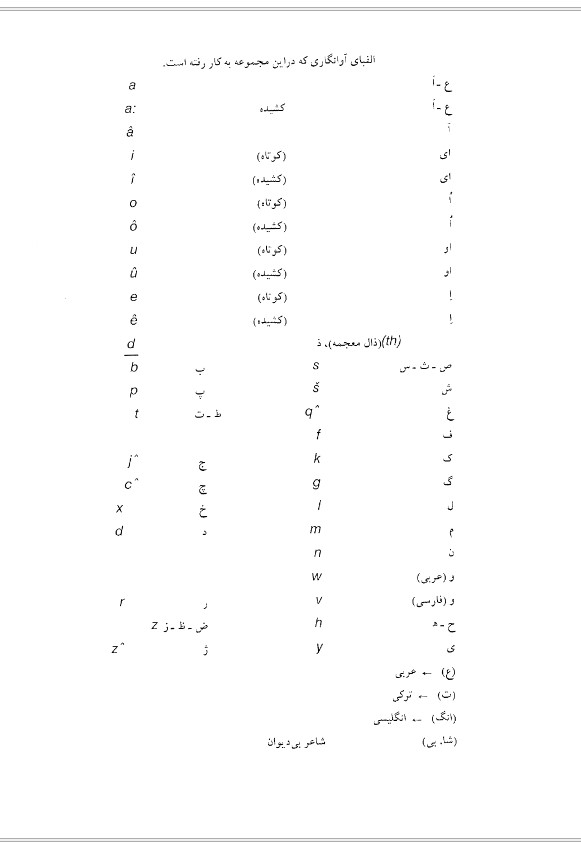 الفبای آوانگاری که دراین مجموعه به کار رفته است.
ع - اَ a
ع - اَ کشیده a:
آ â
ای (کوتاه) i
ای (کشیده) î
اُ (کوتاه) o
اُ (کشیده) ô
او (کوتاه) u
او (کشیده) û
اِ (کوتاه) e
اِ (کشیده) ê
(th)(ذال معجمه)، ذ d
ص - ث - س s ب b
ش š پ p
غ qˆ ط - ت t
ف f
ک k ج jˆ
گ g چ cˆ
ل l خ x
م m د d
ن n
و (عربی) w
و (فارسی) v ر r
ح - ه h ض - ظ - ز z
ی y ژ zˆ
(ع) ← عربی
(ت) ← ترکی
(انگ) ← انگلیسی
(شا. بی) شاعر بی‌دیوان